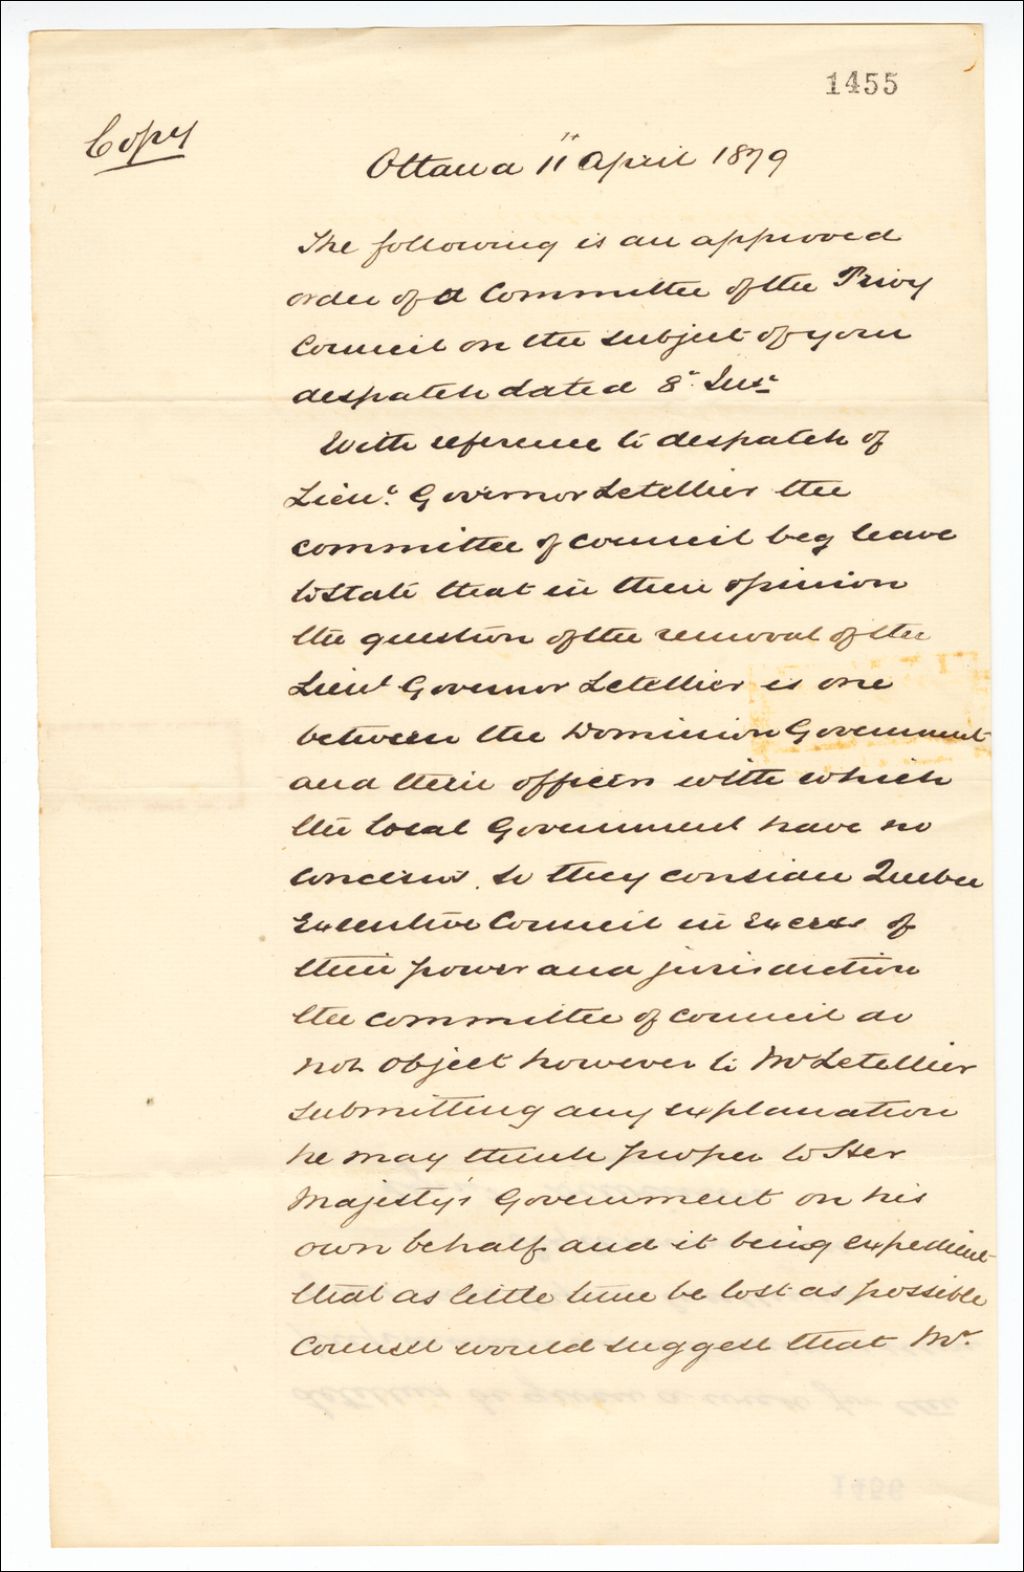 1455
Copy
Ottawa 11" April 1879
The following is an approved
order of a Committee of the Privy
Council on the subject of your
despatch dated 8" Inst
With reference to despatch of
Lieut. Governor Letellier the
committee of council beg leave
to state that in their opinion
the question of the removal of the
Lieut Governor Letellier is one
between the Dominion Government
and their officers with which
the local Government have no
concern. so they consider Quebec
Executive Council in excess of
their power and jurisdiction
the committee of council do
not object however to Mr Letellier
submitting any explanation
he may think proper to Her
Majesty's Government on his
own behalf and it being expedient
that as little time be lost as possible
Council would suggest that Mr.